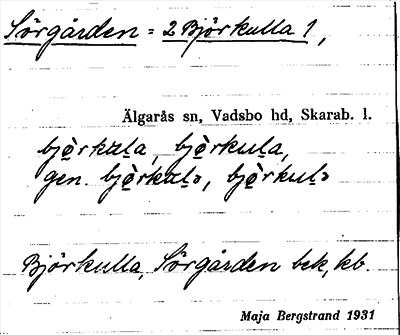 Sörgården = 2 Björkulla 1,
Älgarås sn, Vadsbo hd, Skarab. l.
bjö̀rkuḻa, bjö̀rkuḻa,
gen. bjö̀rkuḻə, bjö̀rkuḻə
Björkulla, Sörgården bek, kb.
Maja Bergstrand 1931